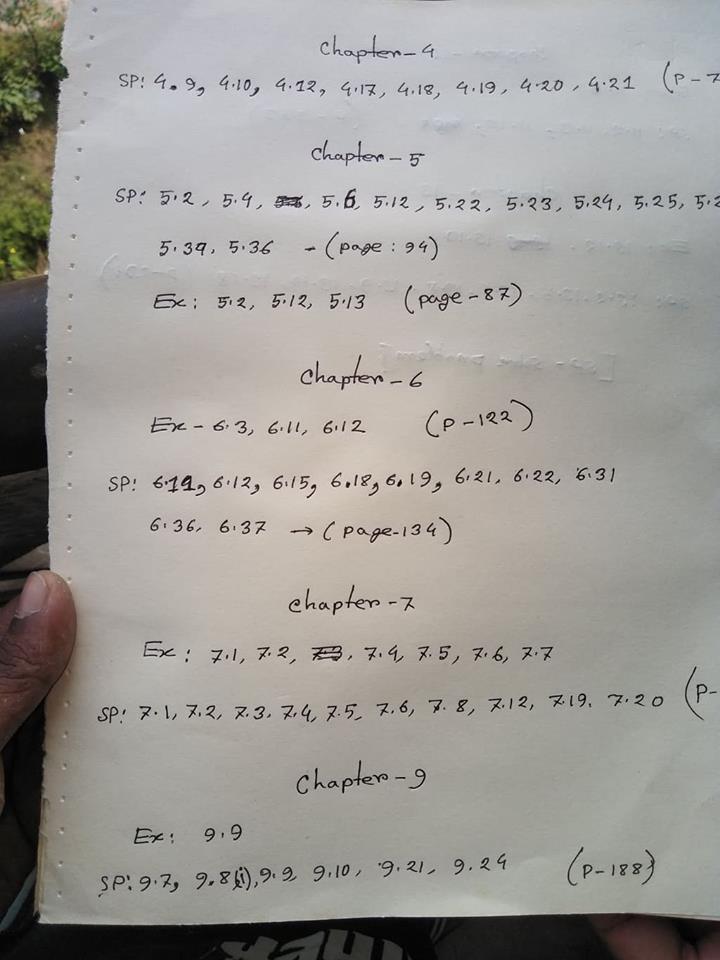 Chapter-4
SP: 4.9, 4.10, 4.12, 4.17, 4.18, 4.19, 4.20, 4.21 (P-7
Chapter-5
SP: 5.2, 5.4, 5.6, 5.12, 5.22, 5.23, 5.24, 5.25, 5.2
5.34, 5.36 - (page: 94)
Ex: 5.2, 5.12, 5.13 (page-87)
Chapter-6
Ex-6.3, 6.11, 6.12 (P-122)
SP: 6.11, 6.12, 6.15, 6.18, 6.19, 6.21, 6.22, 6.31
6.36, 6.37 → (page-134)
Chapter-7
Ex: 7.1, 7.2, 7.3, 7.4, 7.5, 7.6, 7.7
SP: 7.1, 7.2, 7.3, 7.4, 7.5, 7.6, 7.8, 7.12, 7.19. 7.20 (P-
Chapter-9
Ex: 9.9
SP: 9.7, 9.8(i), 9.9 9.10, 9.21, 9.24 (P-188)